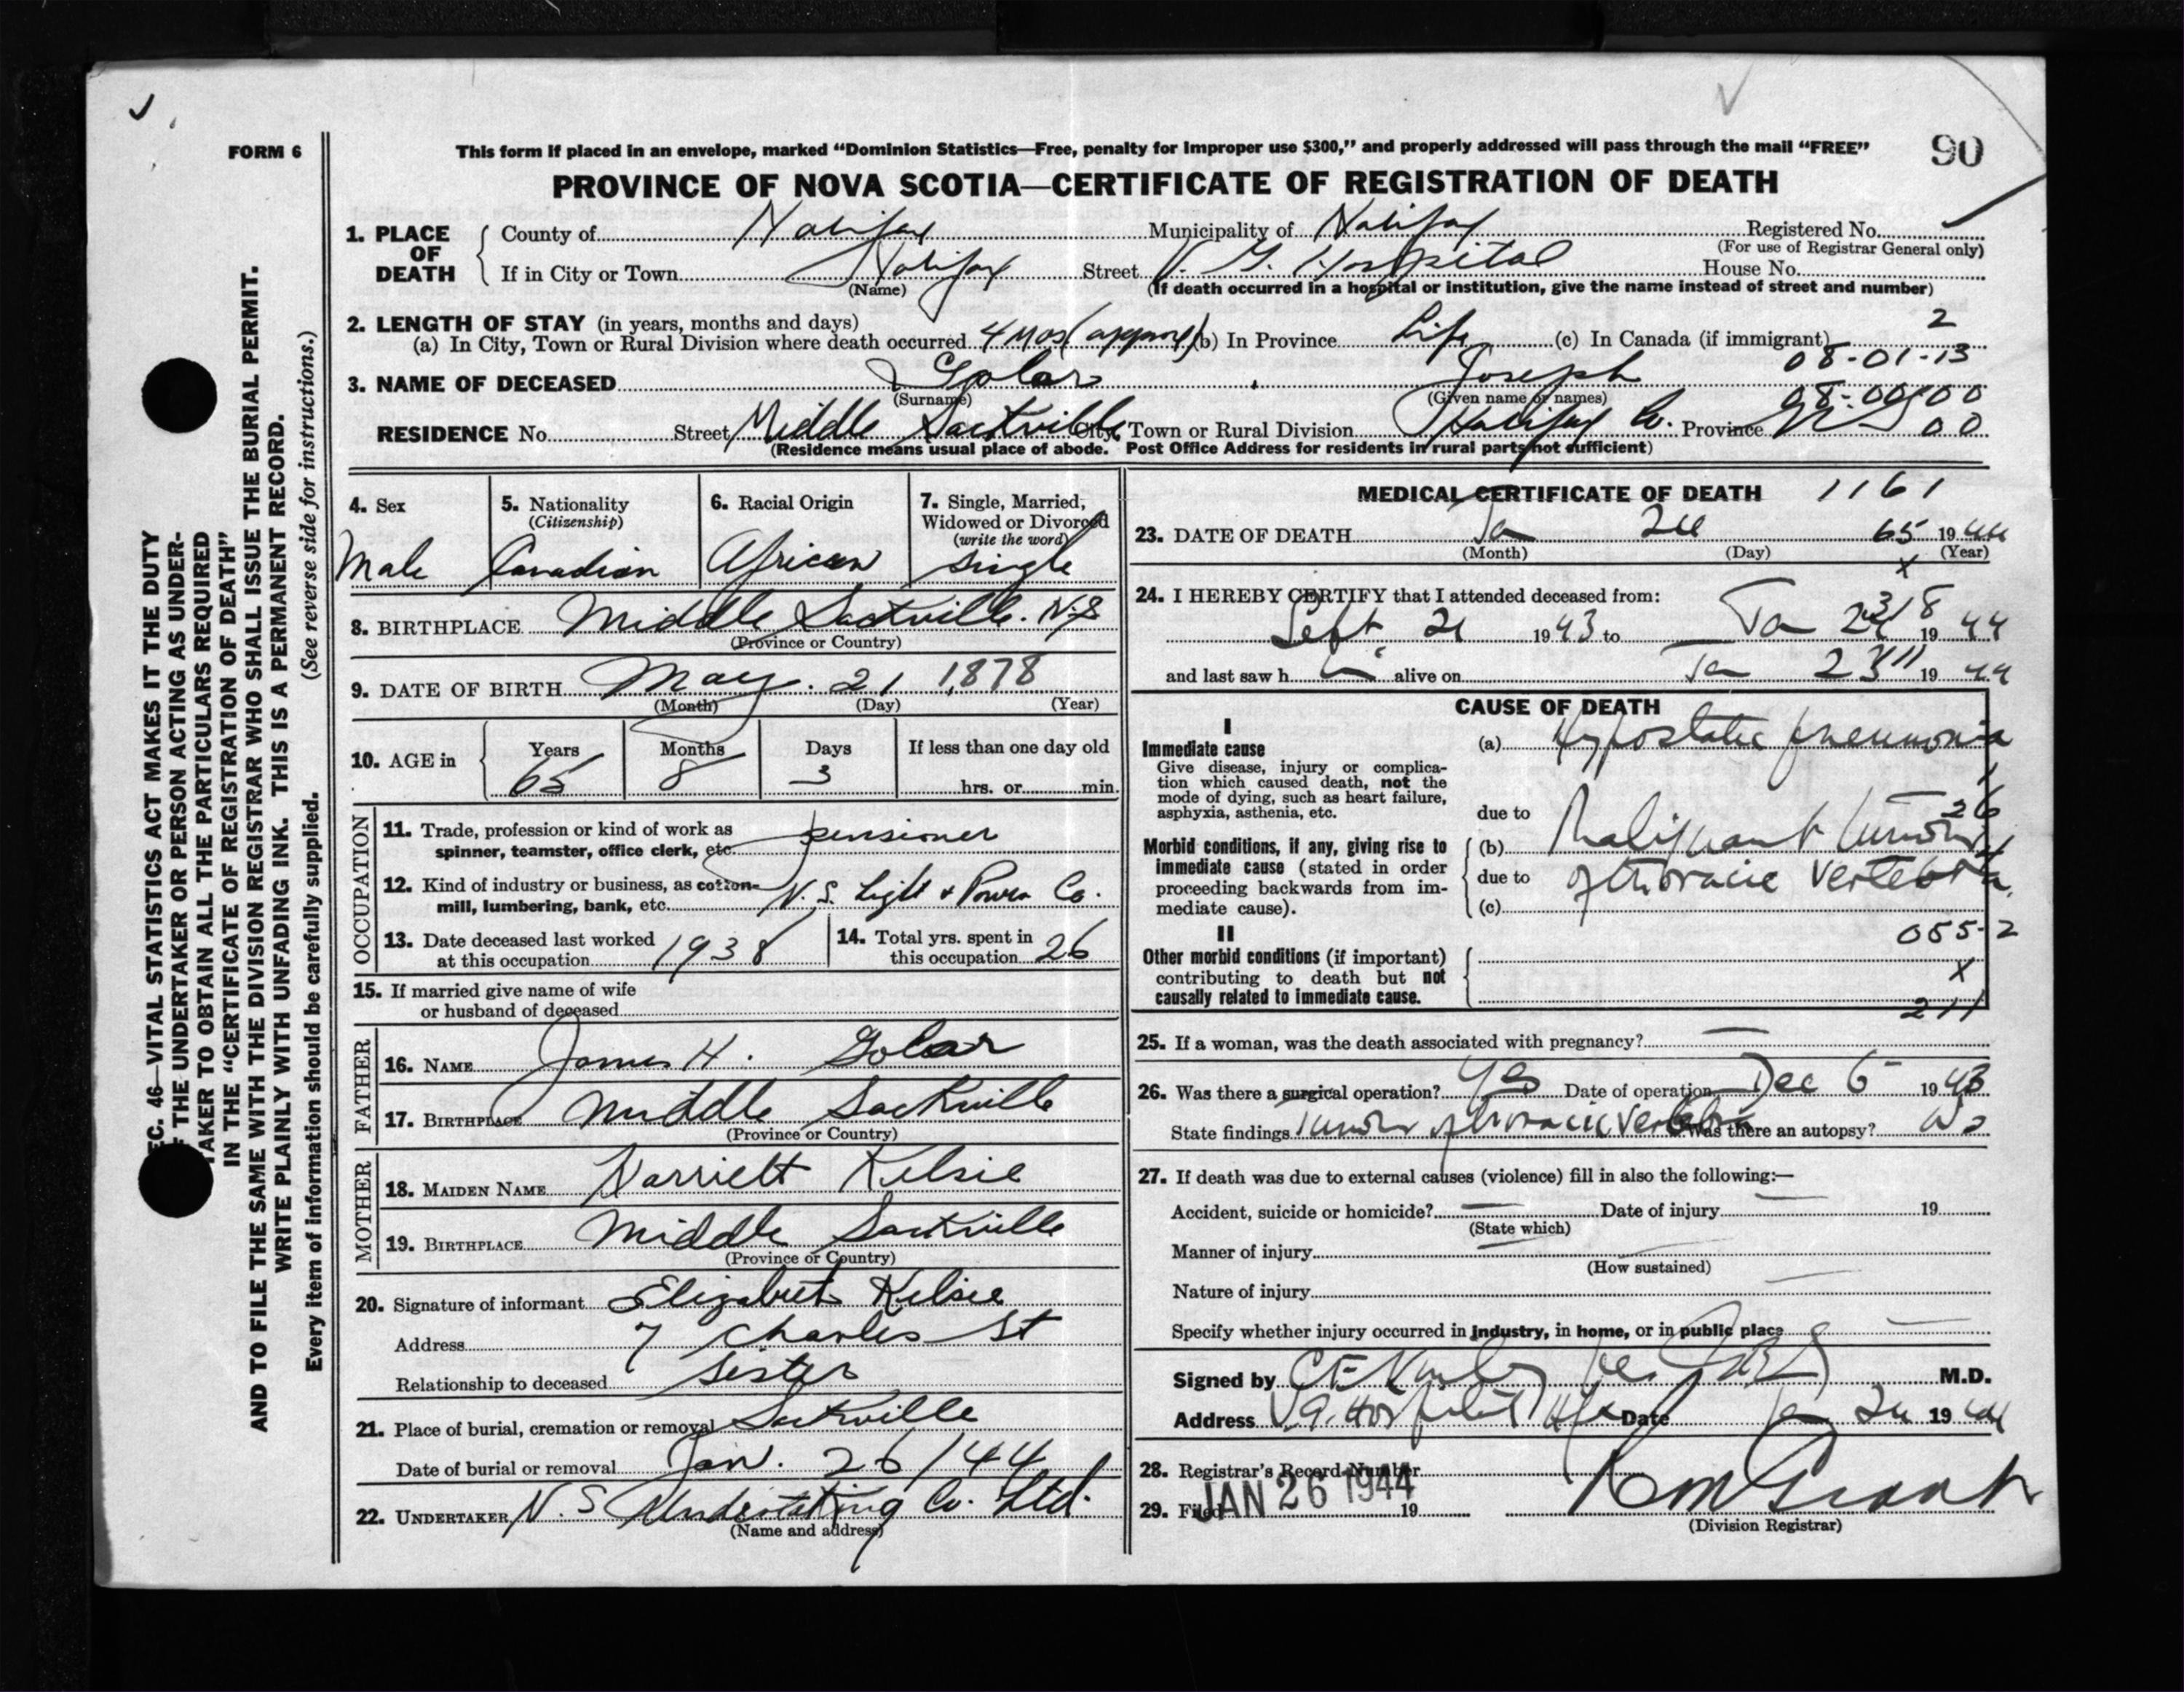 FORM 6
This form if placed in an envelope, marked “Dominion Statistics—Free, penalty for improper use $300,” and properly addressed will pass through the mail “FREE”
90
PROVINCE OF NOVA SCOTIA—CERTIFICATE OF REGISTRATION OF DEATH
1. PLACE OF DEATH
County of Halifax Municipality of Halifax Registered No.
(For use of Registrar General only)
If in City or Town Halifax Street V. G. Hospital House No.
(Name) (If death occurred in a hospital or institution, give the name instead of street and number)
2. LENGTH OF STAY (in years, months and days)
(a) In City, Town or Rural Division where death occurred 4 mos (approx) (b) In Province Life (c) In Canada (if immigrant) 2
08-01-13
3. NAME OF DECEASED Golar, Joseph
(Surname) (Given name or names) 08-00-00
RESIDENCE No. Street Middle Sackville City, Town or Rural Division Halifax Co. Province N S 00
(Residence means usual place of abode. Post Office Address for residents in rural parts not sufficient)
4. Sex
Male
5. Nationality
(Citizenship)
Canadian
6. Racial Origin
African
7. Single, Married,
Widowed or Divorced
(write the word)
Single
8. BIRTHPLACE Middle Sackville. N.S
(Province or Country)
9. DATE OF BIRTH May. 21 1878
(Month) (Day) (Year)
10. AGE in
Years Months Days If less than one day old
65 8 3 hrs. or min.
OCCUPATION
11. Trade, profession or kind of work as
spinner, teamster, office clerk, etc. pensioner
12. Kind of industry or business, as cotton-
mill, lumbering, bank, etc. N. S. Light & Power Co.
13. Date deceased last worked
at this occupation 1938
14. Total yrs. spent in
this occupation 26
15. If married give name of wife
or husband of deceased
FATHER
16. NAME James H. Golar
17. BIRTHPLACE Middle Sackville
(Province or Country)
MOTHER
18. MAIDEN NAME Harriett Kelsie
19. BIRTHPLACE Middle Sackville
(Province or Country)
20. Signature of informant Elizabeth Kelsie
Address 7 Charles St
Relationship to deceased Sister
21. Place of burial, cremation or removal Sackville
Date of burial or removal Jan. 26/44
22. UNDERTAKER N. S Undertaking Co. Ltd.
(Name and address)
MEDICAL CERTIFICATE OF DEATH 1161
23. DATE OF DEATH Ja 24 65 1944
(Month) (Day) (Year)
x
24. I HEREBY CERTIFY that I attended deceased from:
318
Sept 21 1943 to Ja 1944
and last saw h im alive on Ja 23 1944
CAUSE OF DEATH
I
Immediate cause
Give disease, injury or complica-
tion which caused death, not the
mode of dying, such as heart failure,
asphyxia, asthenia, etc.
(a) Hypostatic pneumonia
due to
Morbid conditions, if any, giving rise to
immediate cause (stated in order
proceeding backwards from im-
mediate cause).
(b) Malignant tumor
due to of thoracic vertebra.
(c)
055-2
II
Other morbid conditions (if important)
contributing to death but not
causally related to immediate cause.
X
211
25. If a woman, was the death associated with pregnancy? —
26. Was there a surgical operation? Yes Date of operation Dec 6 1943
State findings Tumor of thoracic vertebra Was there an autopsy? No
27. If death was due to external causes (violence) fill in also the following:—
Accident, suicide or homicide? — Date of injury — 19
(State which)
Manner of injury —
(How sustained)
Nature of injury —
Specify whether injury occurred in industry, in home, or in public place —
Signed by M.D.
Address V G. Hospital Hfx Date Ja 24 1944
28. Registrar's Record Number
29. Filed JAN 26 1944 19
(Division Registrar)
SEC. 46—VITAL STATISTICS ACT MAKES IT THE DUTY
OF THE UNDERTAKER OR PERSON ACTING AS UNDER-
TAKER TO OBTAIN ALL THE PARTICULARS REQUIRED
IN THE “CERTIFICATE OF REGISTRATION OF DEATH”
AND TO FILE THE SAME WITH THE DIVISION REGISTRAR WHO SHALL ISSUE THE BURIAL PERMIT.
WRITE PLAINLY WITH UNFADING INK. THIS IS A PERMANENT RECORD.
Every item of information should be carefully supplied. (See reverse side for instructions.)